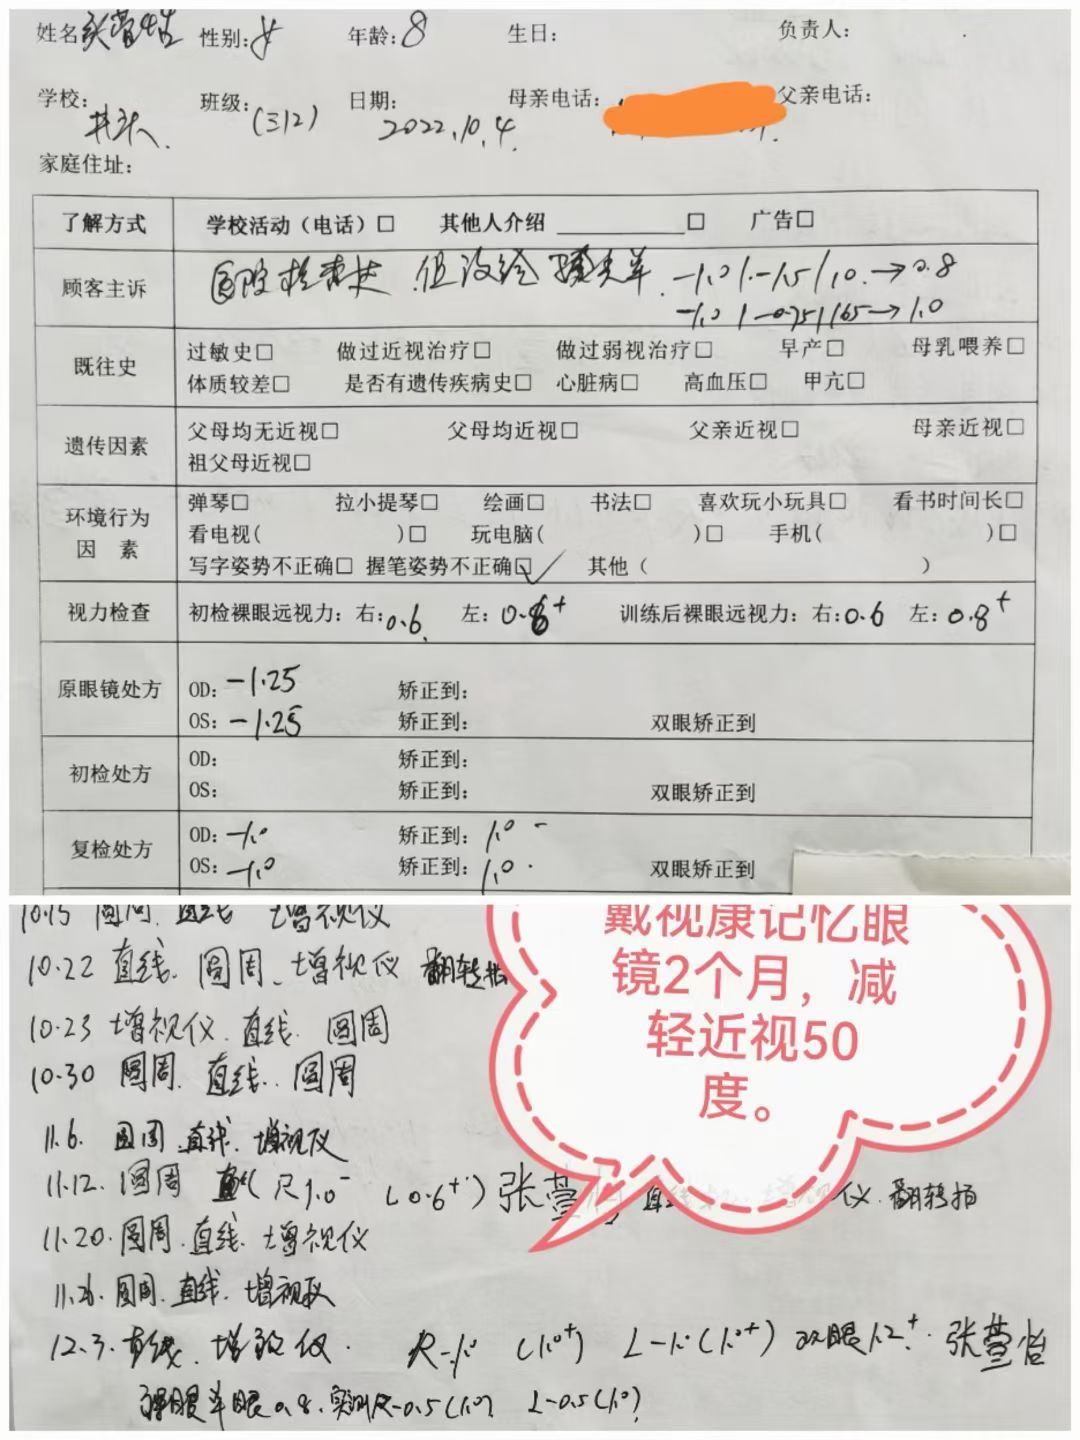 姓名 张萱怡 性别: 女 年龄: 8 生日: 负责人:
学校: 井头 班级: (312) 日期: 2022.10.4 母亲电话: 父亲电话:
家庭住址:
了解方式 学校活动（电话）□ 其他人介绍 ________ □ 广告□
顾客主诉 医院检查过 但没给 -1.0/-1.5/10 → 0.8
-1.0/-0.75/165 → 1.0
既往史 过敏史□ 做过近视治疗□ 做过弱视治疗□ 早产□ 母乳喂养□
体质较差□ 是否有遗传疾病史□ 心脏病□ 高血压□ 甲亢□
遗传因素 父母均无近视□ 父母均近视□ 父亲近视□ 母亲近视□
祖父母近视□
环境行为因 素 弹琴□ 拉小提琴□ 绘画□ 书法□ 喜欢玩小玩具□ 看书时间长□
看电视( )□ 玩电脑( )□ 手机( )□
写字姿势不正确□ 握笔姿势不正确□✓ 其他（ ）
视力检查 初检裸眼远视力: 右: 0.6 左: 0.8+ 训练后裸眼远视力: 右: 0.6 左: 0.8+
原眼镜处方 OD: -1.25 矫正到:
OS: -1.25 矫正到: 双眼矫正到
初检处方 OD: 矫正到:
OS: 矫正到: 双眼矫正到
复检处方 OD: -1.0 矫正到: 1.0-
OS: -1.0 矫正到: 1.0 双眼矫正到
10.15 圆周. 直线 增视仪
10.22 直线. 圆周. 增视仪 翻转拍
10.23 增视仪. 直线. 圆周
10.30 圆周. 直线. 圆周
11.6. 圆周. 直线. 增视仪
11.12. 圆周 直线 R 1.0- L 0.6+) 张萱 仪. 翻转拍
11.20. 圆周. 直线. 增视仪
11.26. 圆周. 直线. 增视仪
12.3. 直线. 增视仪. R-1.0 (1.0+) L-1.0 (1.0+) 双眼1.2+. 张萱怡
裸眼单眼0.8. 实测R-0.5(1.0) L-0.5(1.0)
戴视康记忆眼
镜2个月，减
轻近视50
度。